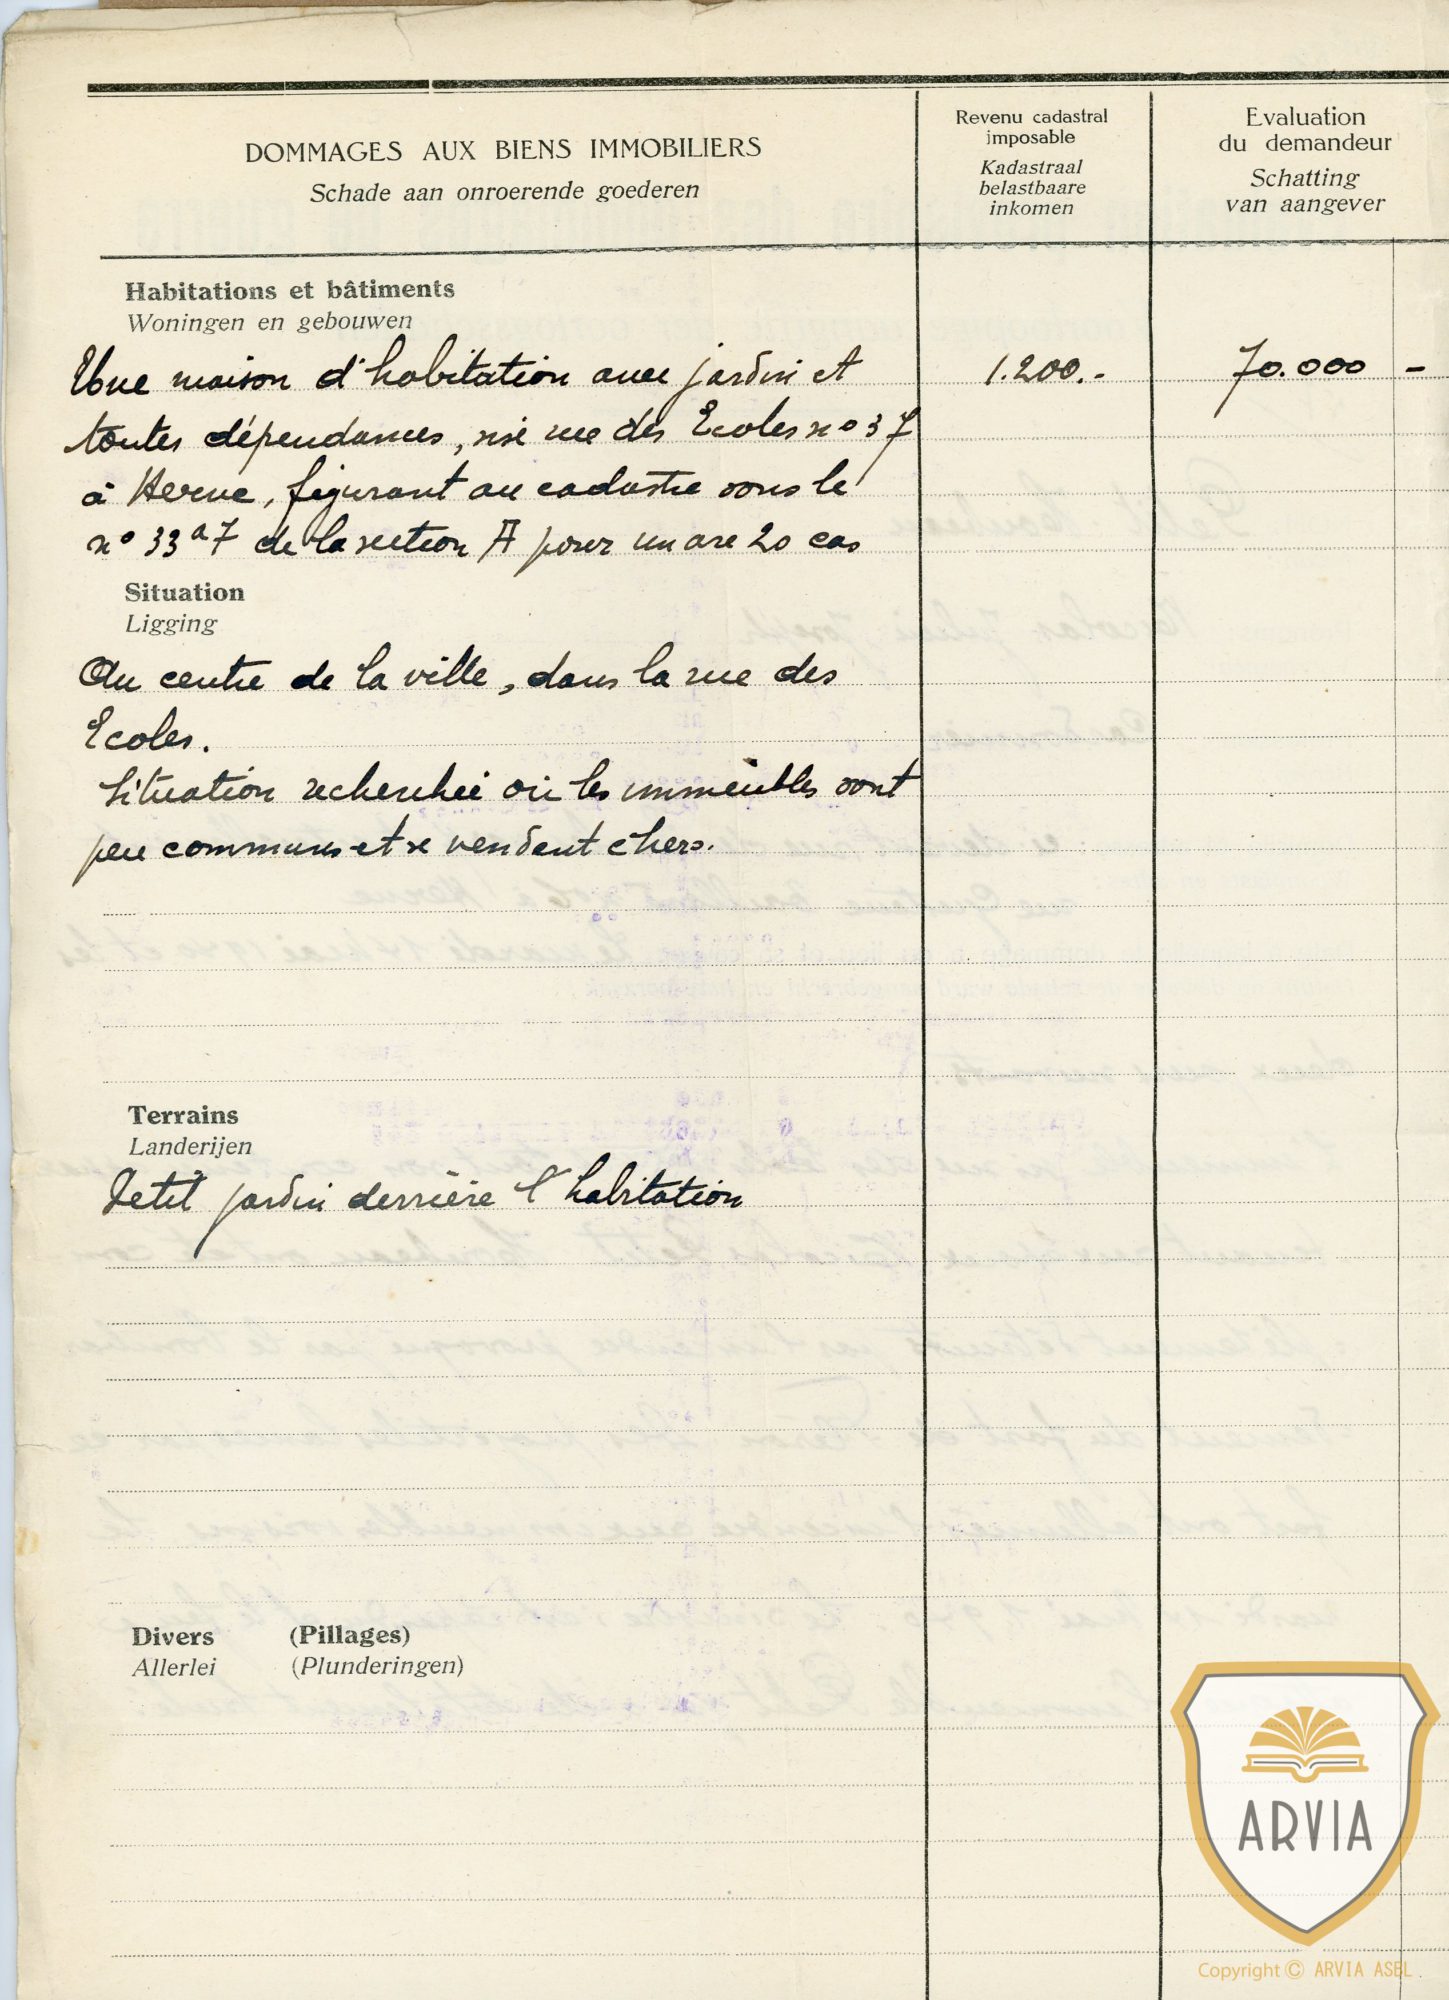 DOMMAGES AUX BIENS IMMOBILIERS
Schade aan onroerende goederen
Revenu cadastral
imposable
Kadastraal
belastbaare
inkomen
Evaluation
du demandeur
Schatting
van aangever
Habitations et bâtiments
Woningen en gebouwen
Une maison d'habitation avec jardin et 1.200.- 70.000 -
toutes dépendances, sise rue des Ecoles n° 37
à Herve, figurant au cadastre sous le
n° 33 a 7 de la section A pour un are 20 cas
Situation
Ligging
Au centre de la ville, dans la rue des
Ecoles.
Situation recherchée où les immeubles sont
peu communs et se vendent chers.
Terrains
Landerijen
Petit jardin derrière l'habitation
Divers (Pillages)
Allerlei (Plunderingen)
ARVIA
Copyright © ARVIA ASBL